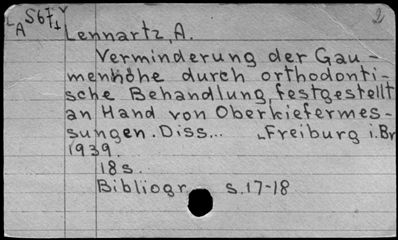 LA S671 Y
2
Lennartz, A.
Verminderung der Gau-
menhöhe durch orthodonti-
sche Behandlung, festgestellt
an Hand von Oberkiefermes-
sungen. Diss... Freiburg i. Br
1939.
18s.
Bibliogr s.17-18